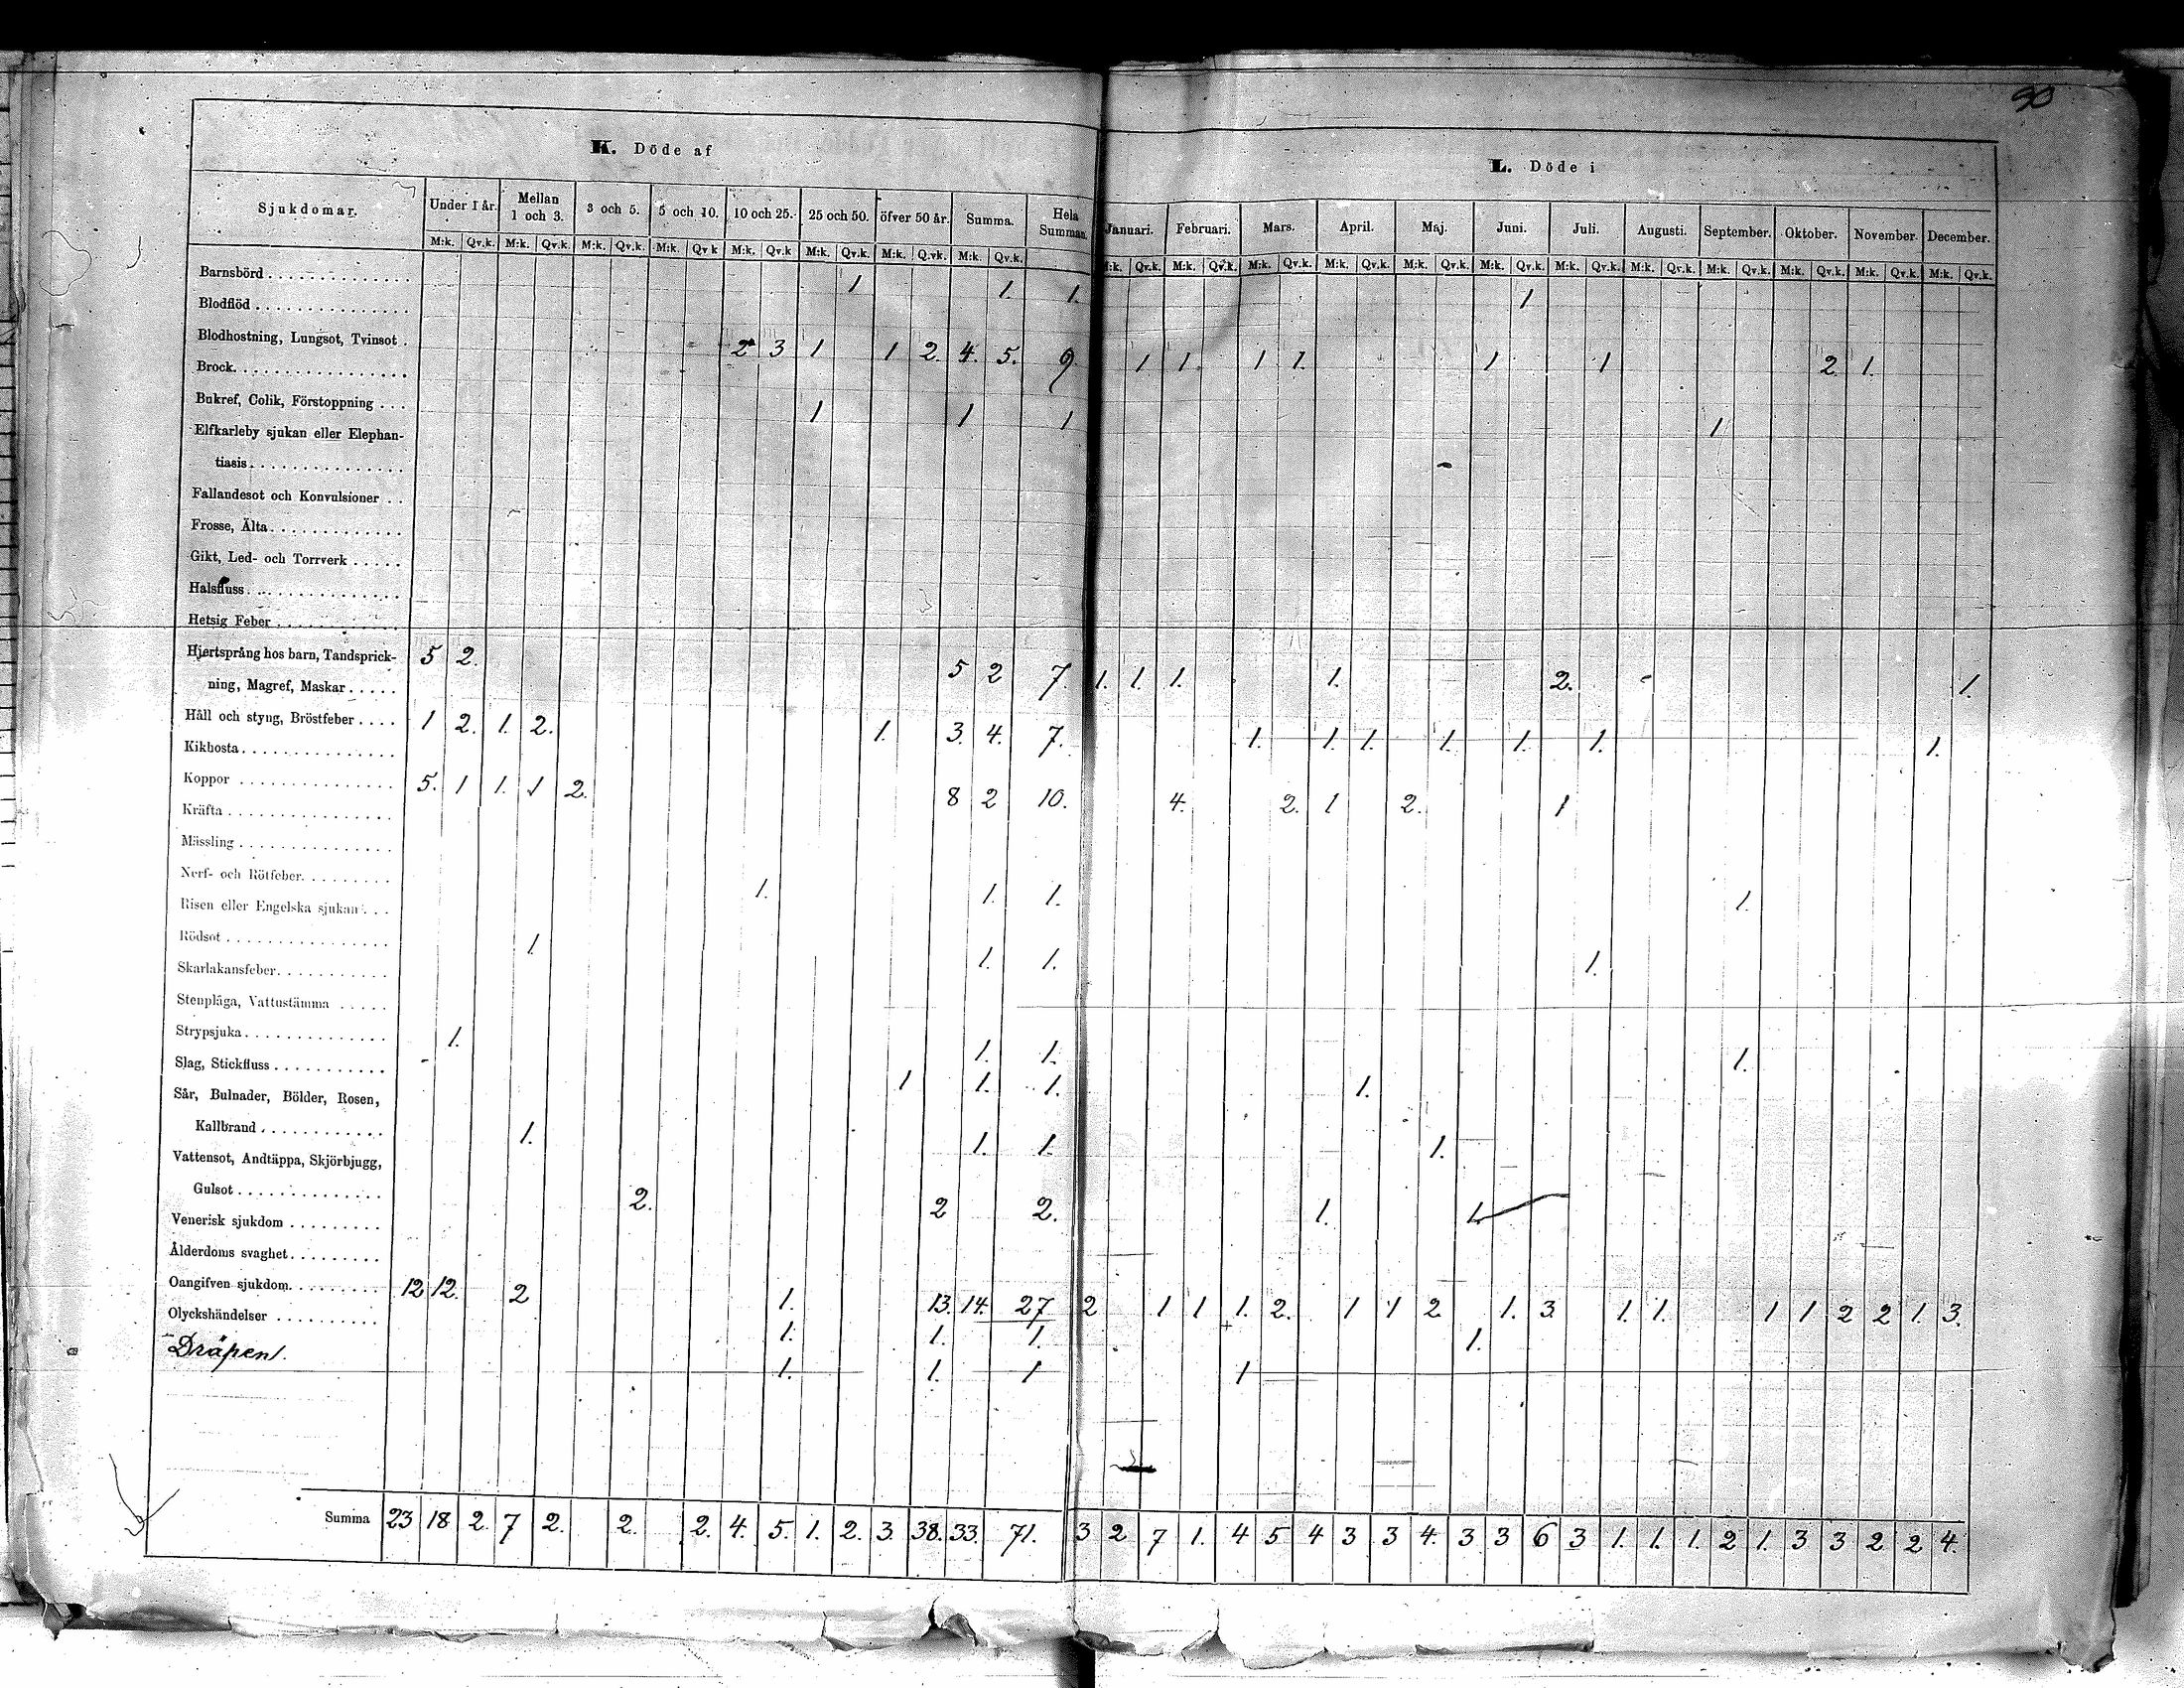 90
K. Döde af
L. Döde i
Sjukdomar. Under 1 år. Mellan 1 och 3. 3 och 5. 5 och 10. 10 och 25. 25 och 50. öfver 50 år. Summa. Hela Summan. Januari. Februari. Mars. April. Maj. Juni. Juli. Augusti. September. Oktober. November. December.
M:k. Qv.k. M:k. Qv.k. M:k. Qv.k. M:k. Qv k M:k. Qv.k M:k. Qv.k. M:k. Q.vk. M:k. Qv.k. M:k. Qv.k. M:k. Qv.k. M:k. Qv.k. M:k. Qv.k. M:k. Qv.k. M:k. Qv.k. M:k. Qv.k. M:k. Qv.k. M:k. Qv.k. M:k. Qv.k. M:k. Qv.k. M:k. Qv.k.
Barnsbörd 1 1. 1. 1
Blodflöd
Blodhostning, Lungsot, Tvinsot . 2 3 1 1 2. 4. 5. 9. 1 1. 1 1. 1 1 2. 1.
Brock.
Bukref, Colik, Förstoppning . . . 1 1 1 1
Elfkarleby sjukan eller Elephan-
tiasis
Fallandesot och Konvulsioner . .
Frosse, Älta
Gikt, Led- och Torrverk
Halsfluss
Hetsig Feber
Hjertsprång hos barn, Tandsprick- 5 2.
ning, Magref, Maskar 5 2 7. 1. 1. 1. 1. 2. 1.
Håll och styng, Bröstfeber 1 2. 1. 2. 1. 3. 4. 7. 1. 1. 1. 1. 1. 1. 1.
Kikhosta
Koppor 5. 1 1. 1 2. 8 2 10. 4. 2. 1 2. 1
Kräfta
Mässling
Nerf- och Rötfeber. 1. 1. 1. 1.
Risen eller Engelska sjukan . . .
Rödsot 1. 1. 1. 1.
Skarlakansfeber
Stenplåga, Vattustämma
Strypsjuka 1. 1. 1. 1.
Slag, Stickfluss 1 1. 1. 1.
Sår, Bulnader, Bölder, Rosen,
Kallbrand 1. 1. 1. 1.
Vattensot, Andtäppa, Skjörbjugg,
Gulsot 2. 2 2. 1. 1.
Venerisk sjukdom
Ålderdoms svaghet
Oangifven sjukdom. 12 12. 2 1. 13. 14. 27 2 1 1 1. 2. 1 1 2 1. 3. 1. 1. 1 1 2 2 1. 3.
Olyckshändelser 1. 1. 1. 1.
Dräpen. 1. 1. 1 1
Summa 23 18 2. 7 2. 2. 2. 4. 5. 1. 2. 3. 38. 33. 71. 3 2 7 1. 4 5 4 3 3 4. 3 3 6 3 1. 1. 1. 2 1. 3 3 2 2 4.